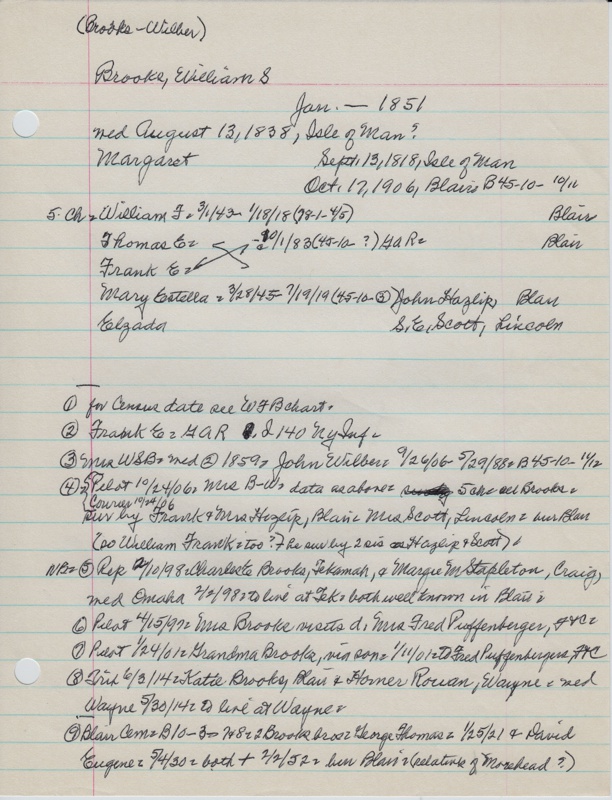 (Brooks-Wilber)
Brooks, William S
Jan. — 1851
med August 13, 1838, Isle of Man?
Margaret Sept. 13, 1818, Isle of Man
Oct. 17, 1906, Blair B 45-10- 10/11
5 ch = William F = 3/1/43- 1/18/18 (78-1-4/5) Blair
Thomas E = - 10/1/83 (45-10-?) GAR = Blair
Frank E =
Mary Estella = 3/28/45- 7/19/19 (45-10-3) John Hazlip, Blair
Elzada S. E. Scott, Lincoln
① for Census date see WFB chart.
② Frank E = GAR D 140 Ny Inf =
③ Mrs WSB = med ② 1859 = John Wilber = 9/26/06- 5/29/88 = B 45-10- 11/2
④ = Pilot 10/24/06 = Mrs B-W = data as above = 5 ch = all Brooks =
Courier 10/24/06
sur by Frank & Mrs Hazlip, Blair = Mrs Scott, Lincoln = bur Blair
(so William Frank = too? = he sur by 2 sis as Hazlip & Scott)
NB = ⑤ Rep 2/10/98 = Charles E Brooks, Tekamah, & Margie M Stapleton, Craig,
med Omaha 2/2/98 = to live at Tek = both well known in Blair =
⑥ Pilot 4/15/97 = Mrs Brooks visits d. Mrs Fred Puffenberger, Ft C =
⑦ Pilot 1/24/01 = Grandma Brooks, via son = 1/11/01 = to Fred Puffenbergers, Ft C
⑧ Trib 6/3/14 = Katie Brooks, Blair & Homer Rouan, Wayne = med
Wayne 5/30/14 = to live at Wayne =
⑨ Blair Cem = B 10-3 = 7 & 8 = 2 Brooks bros = George Thomas = 1/25/21 & David
Eugene = 5/4/30 = both + 2/2/52 = bur Blair = (relatives of Morehead?)